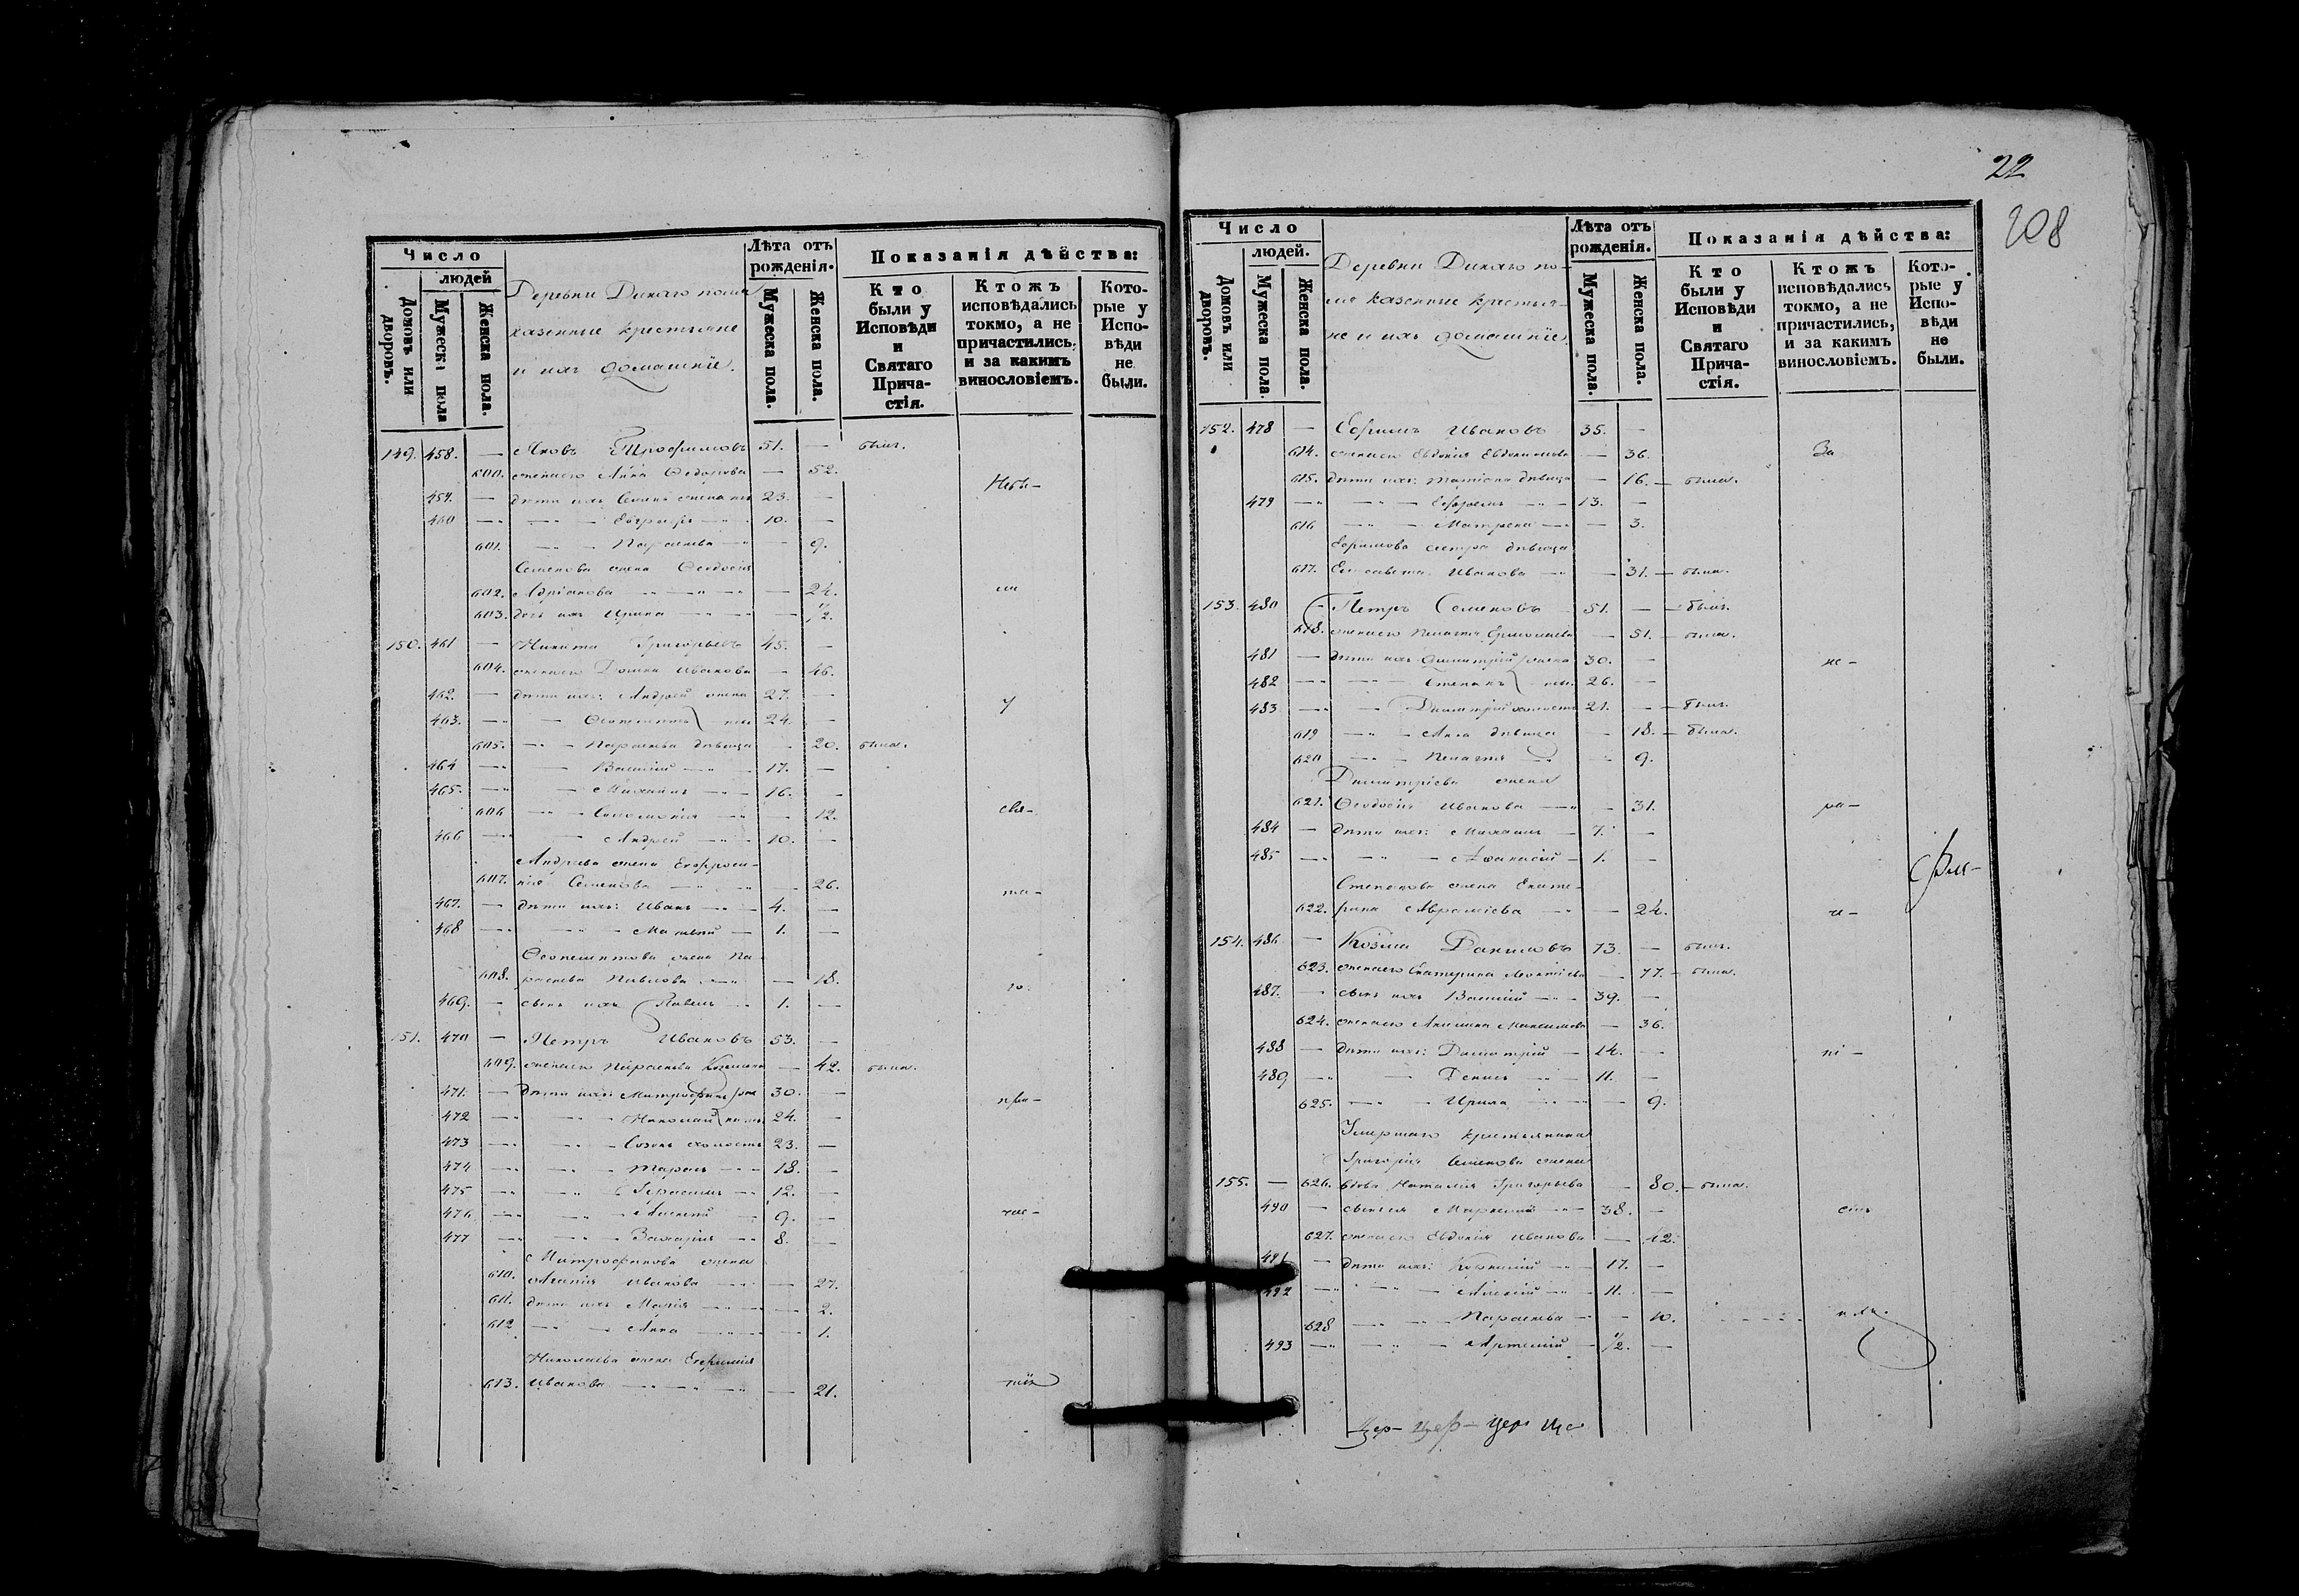 Число
людей
Домовъ или дворовъ.
Мужеска пола
Женска пола.
Деревни Дикаго поля
казенные крестьяне
и ихъ домашніе.
Лѣта отъ рожденія.
Мужеска пола.
Женска пола.
Показанія дѣйства:
Кто были у Исповѣди и Святаго Причастія.
Ктожъ исповѣдались токмо, а не причастились, и за какимъ винословіемъ.
Которые у Исповѣди не были.
149. 458. — Яковъ Трофимовъ 51. — былъ.
600. жена его Анна Ѳедорова — 52.
Небы-
459. — дѣти ихъ: Семенъ женатъ 23. —
460 — Евграфъ 10. —
601. Параскева — 9.
Семенова жена Ѳеодосія
602. Адріанова — 24.
ли
603. дочь ихъ Ирина — 1/2.
150. 461 — Никита Григорьевъ 45. —
604. жена его Домна Иванова — 46.
462. — дѣти ихъ: Андрей жена 27. —
у
463. Ѳеопемптъ ты 24. —
605. Параскева дѣвица — 20. была.
464 Василій 17. —
465. Михаилъ 16. —
606 Соломонія — 12.
свя-
466 Андрей 10. —
Андреева жена Евфроси-
607. нія Семенова — 26.
та-
467. — дѣти ихъ: Иванъ 4. —
468 Матвѣй 1. —
Ѳеопемптова жена Па-
608. раскева Павлова — 18.
го
469. — сынъ ихъ Павелъ 1. —
151. 470 — Петръ Ивановъ 53. —
609. жена его Параскева Козмина — 42. была.
471. — дѣти ихъ: Митрофанъ же 30. —
при-
472 Николай наты 24. —
473 Созонъ холостъ 23. —
474 Тарасъ 18. —
475 Герасимъ 12. —
476 Алексѣй 9. —
час-
477 Захарія 8. —
Митрофанова жена
610. Агапія Иванова — 27.
611. дѣти ихъ Марія — 2.
612 Анна — 1.
Николаева жена Евфимія
613. Иванова — 21.
тія
22
208
Число
людей.
Домовъ или дворовъ.
Мужеска пола.
Женска пола.
Деревни Дикаго по-
ля казенные крестья-
не и ихъ домашніе
Лѣта отъ рожденія.
Мужеска пола.
Женска пола.
Показанія дѣйства:
Кто были у Исповѣди и Святаго Причастія.
Ктожъ исповѣдались токмо, а не причастились, и за какимъ винословіемъ.
Которые у Исповѣди не были.
152. 478 — Ефимъ Ивановъ 35. —
614. жена его Евдокія Евдокимова — 36.
За
615. дѣти ихъ: Татіана дѣвица — 16. — была.
479 Ефремъ 13. —
616 Матрена — 3.
Ефимова сестра дѣвица
617. Елисавета Иванова — 31. — была.
153. 480 — Петръ Семеновъ 51. — — былъ.
618. жена его Пелагія Ермолаева — 51. — была.
481 — дѣти ихъ Димитрій жена 30. —
не-
482 Степанъ ты. 26. —
483 Димитрій холостъ 21. — — былъ.
619 Анна дѣвица — 18. — была.
620 Пелагія — 9.
Димитріева жена
621. Ѳеодосія Иванова — 31.
ра-
484 — дѣти ихъ: Михаилъ 7. —
485 Аѳанасій 1. —
Степанова жена Екате-
622. рина Аврамiева — 24.
154. 486 — Козма Даниловъ 73. — былъ.
623. жена его Екатерина Леонтіева — 77. — была.
487. — сынъ ихъ Василій 39. —
624. жена его Акилина Максимова — 36.
488 — дѣти ихъ: Димитрій 14. —
ні-
489 Денисъ 11. —
625. Ирина — 9.
Умершаго крестьянина
Григорія Семенова жена
155. — 626. вдова Наталія Григорьева — 80. — была.
490 — сынъ ея 38. —
627. жена его Евдокія Иванова — 42.
491 — дѣти ихъ: Корнилій 17. —
492 Алексѣй 11. —
628 Параскева — 10.
493 Артемій 1/2. —